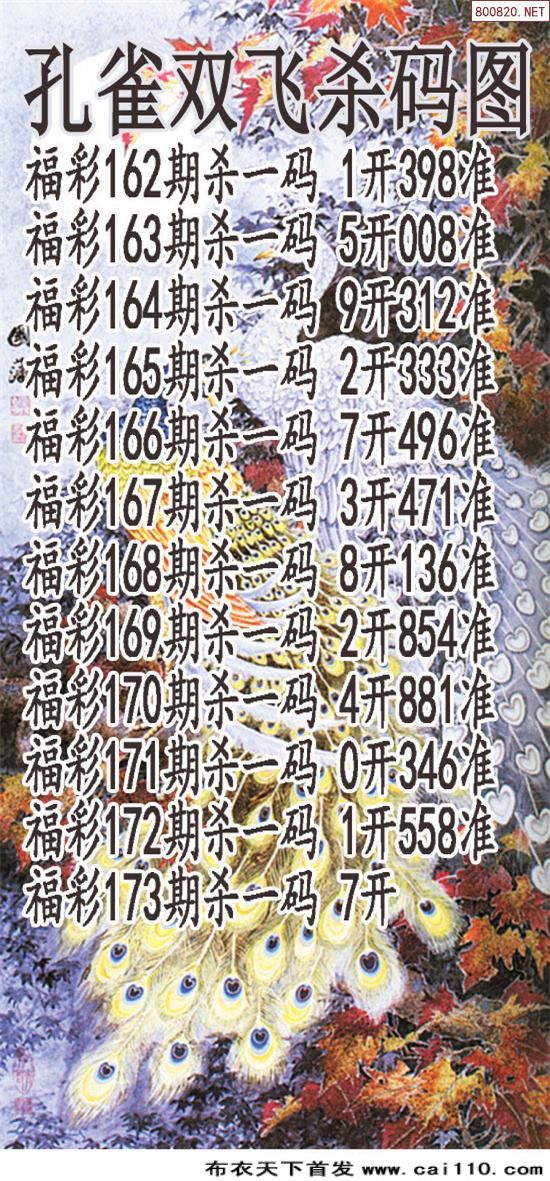 800820.NET
孔雀双飞杀码图
福彩162期杀一码 1开398准
福彩163期杀一码 5开008准
福彩164期杀一码 9开312准
福彩165期杀一码 2开333准
福彩166期杀一码 7开496准
福彩167期杀一码 3开471准
福彩168期杀一码 8开136准
福彩169期杀一码 2开854准
福彩170期杀一码 4开881准
福彩171期杀一码 0开346准
福彩172期杀一码 1开558准
福彩173期杀一码 7开
布衣天下首发 www.cai110.com